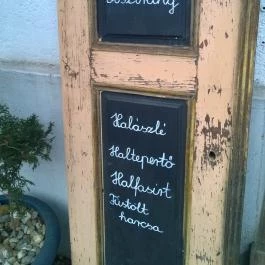 Halászlé
Haltepertő
Halfasírt
Füstölt
harcsa